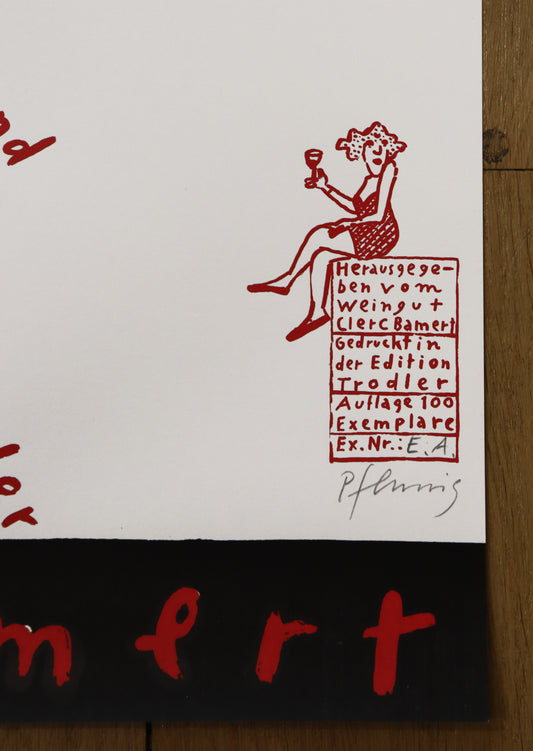 nd
Herausgege-
ben vom
Weingut
Clerc Bamert
Gedruckt in
der Edition
Trodler
Auflage 100
Exemplare
Ex.Nr.: E.A.
Pflennig
ler
mert